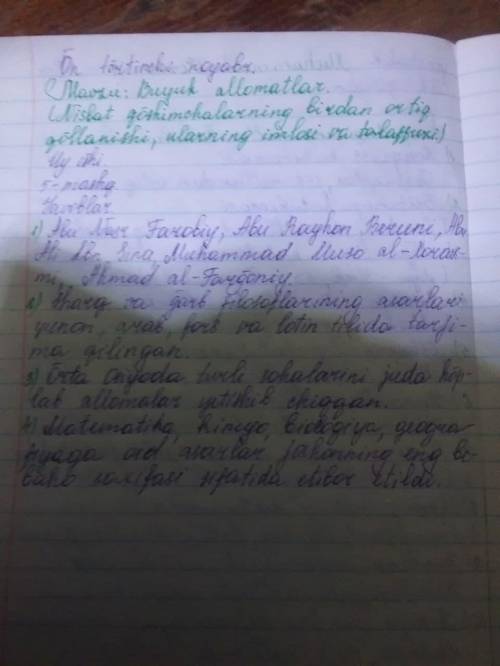 Ōn tōrtinchi noyabr.
Mavzu: Buyuk allomatlar.
(Nisbat qōshimchalarning birdan ortiq
qōllanishi, ularning imlosi va talaffuzi)
Uy ishi
5-mashq
Javoblar
1) Abu Nasr Farobiy, Abu Rayhon Beruni, Abu
Ali Ibn Sino, Muhammad Muso al-Xoraz-
miy, Ahmad al-Farģoniy.
2) Sharq va ģarb filosoflarining asarlari
yunon, arab, fors va lotin tilida tarji-
ma qilingan.
3) Ōrta Osiyoda turli sohalarini juda kōp-
lab allomalar yetishib chiqqan.
4) Matematika, kimyo, biologiya, geogra
fiyaga oid asarlar jahonning eng be
baho saxifasi sifatida etibor etildi.